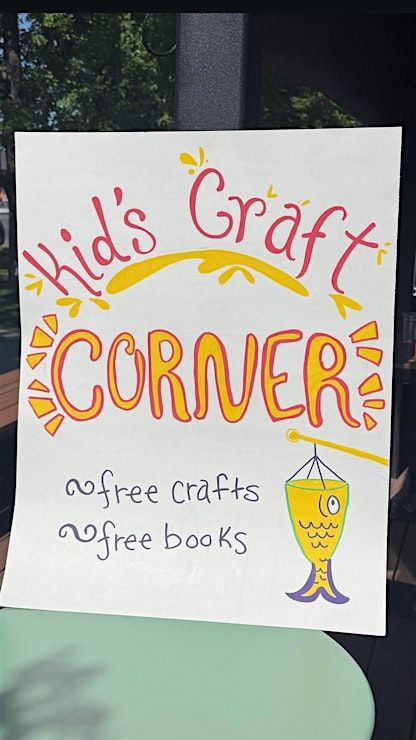 Kid's Craft
CORNER
~free crafts
~free books